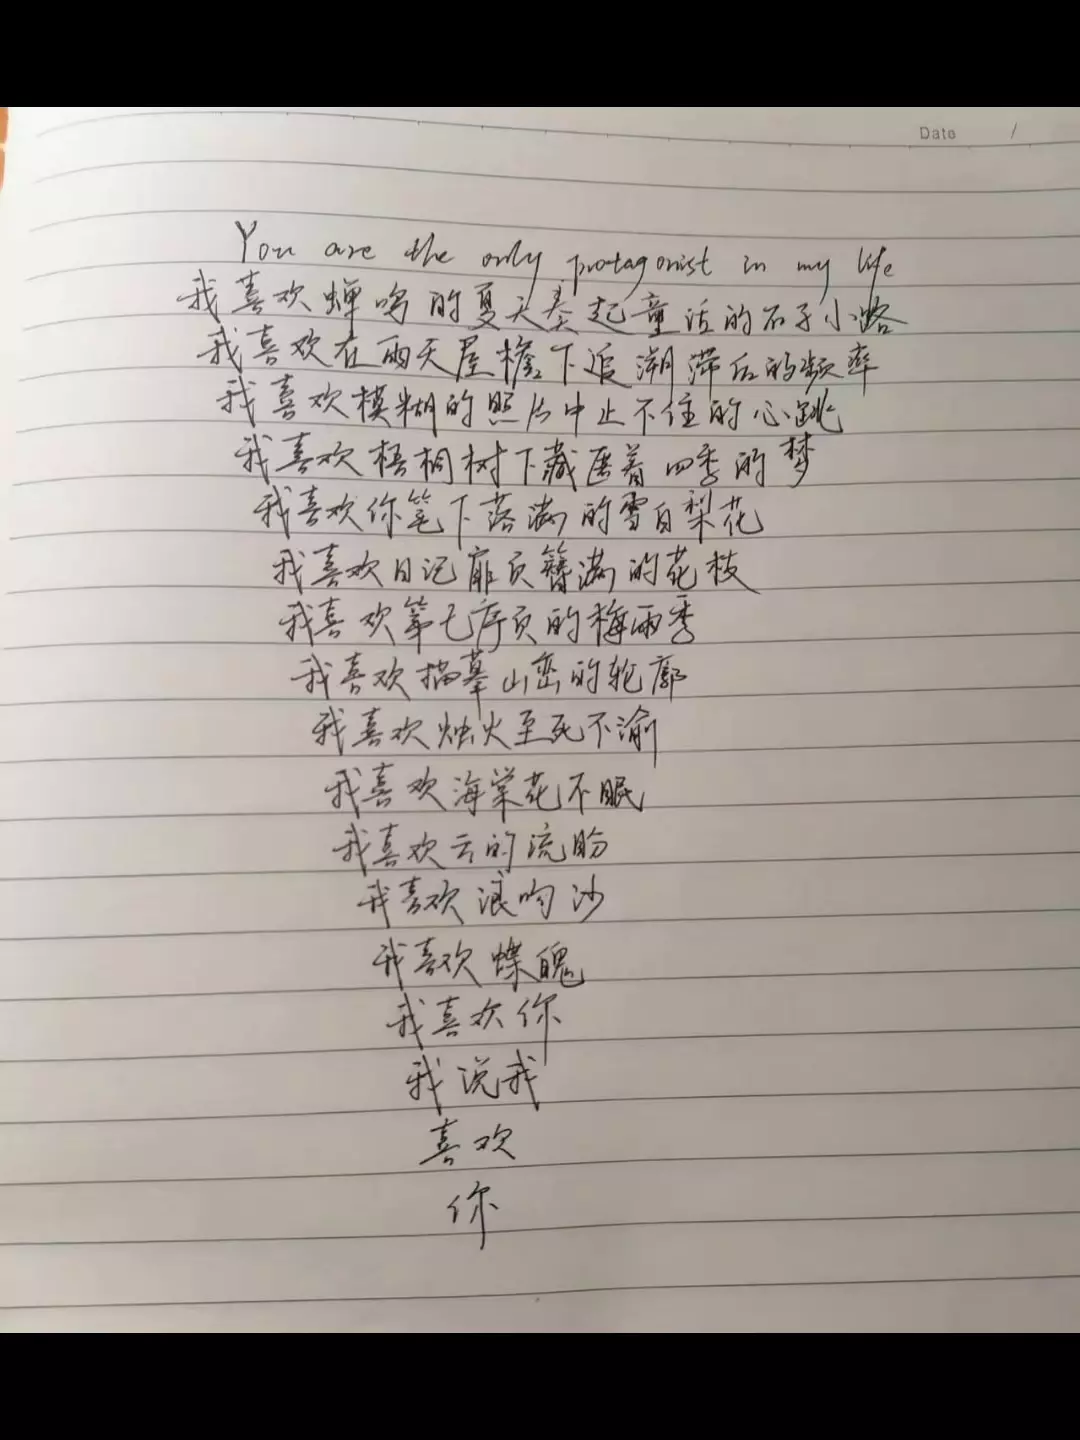 Date /
You are the only protagonist in my life
我喜欢蝉鸣的夏天奏起童话的石子小路
我喜欢在雨天屋檐下追溯滞后的频率
我喜欢模糊的照片中止不住的心跳
我喜欢梧桐树下藏匿着四季的梦
我喜欢你笔下落满的雪白梨花
我喜欢日记扉页簪满的花枝
我喜欢第七序页的梅雨季
我喜欢描摹山峦的轮廓
我喜欢烛火至死不渝
我喜欢海棠花不眠
我喜欢云的流盼
我喜欢浪吻沙
我喜欢蝶魄
我喜欢你
我说我
喜欢
你